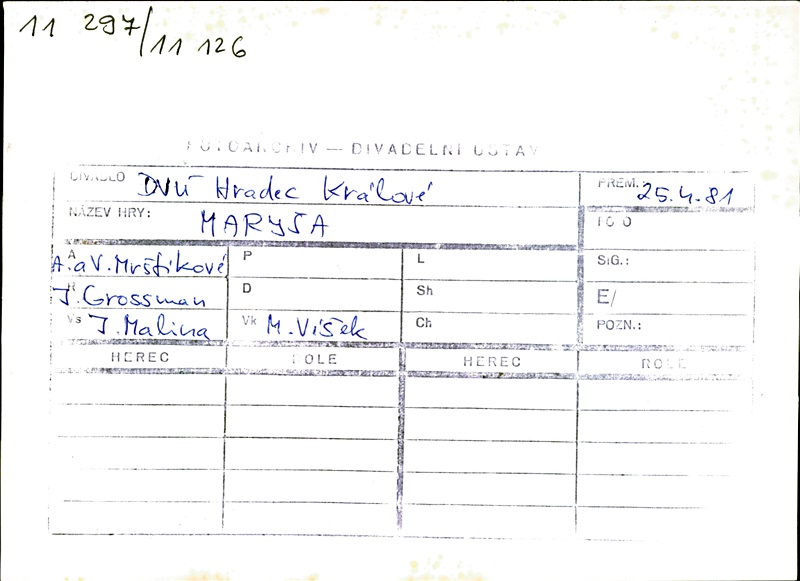 11 297/11 126
FOTOARCHIV — DIVADELNÍ ÚSTAV
DIVADLO DVÚ Hradec Králové
PREM.: 25.4.81
NÁZEV HRY: MARYŠA
FOTO
A A. a V. Mrštíkové P L SIG.:
R J. Grossman D Sh E/
Vs J. Malina Vk M. Víšek Ch POZN.:
HEREC ROLE HEREC ROLE